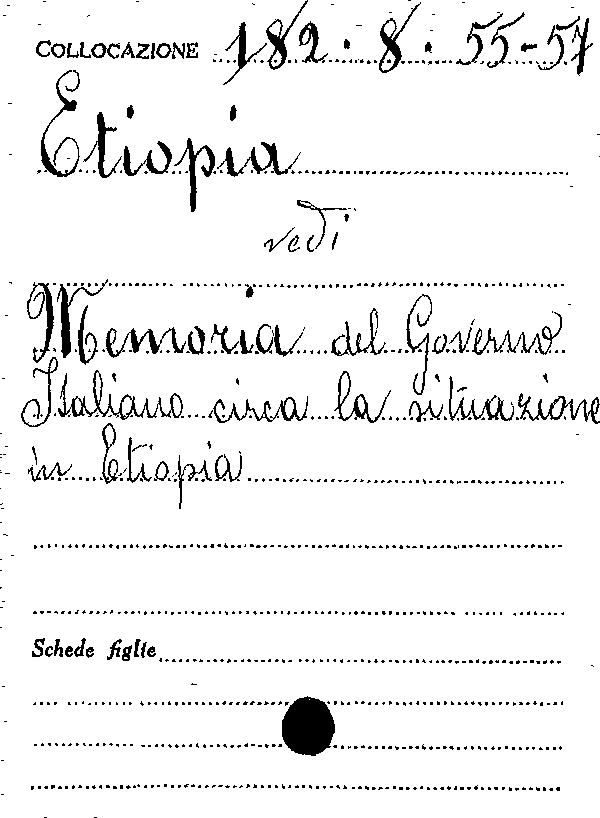 COLLOCAZIONE 182.8.55-57
Etiopia
vedi
Memoria del Governo
Italiano circa la situazione
in Etiopia
Schede figlie